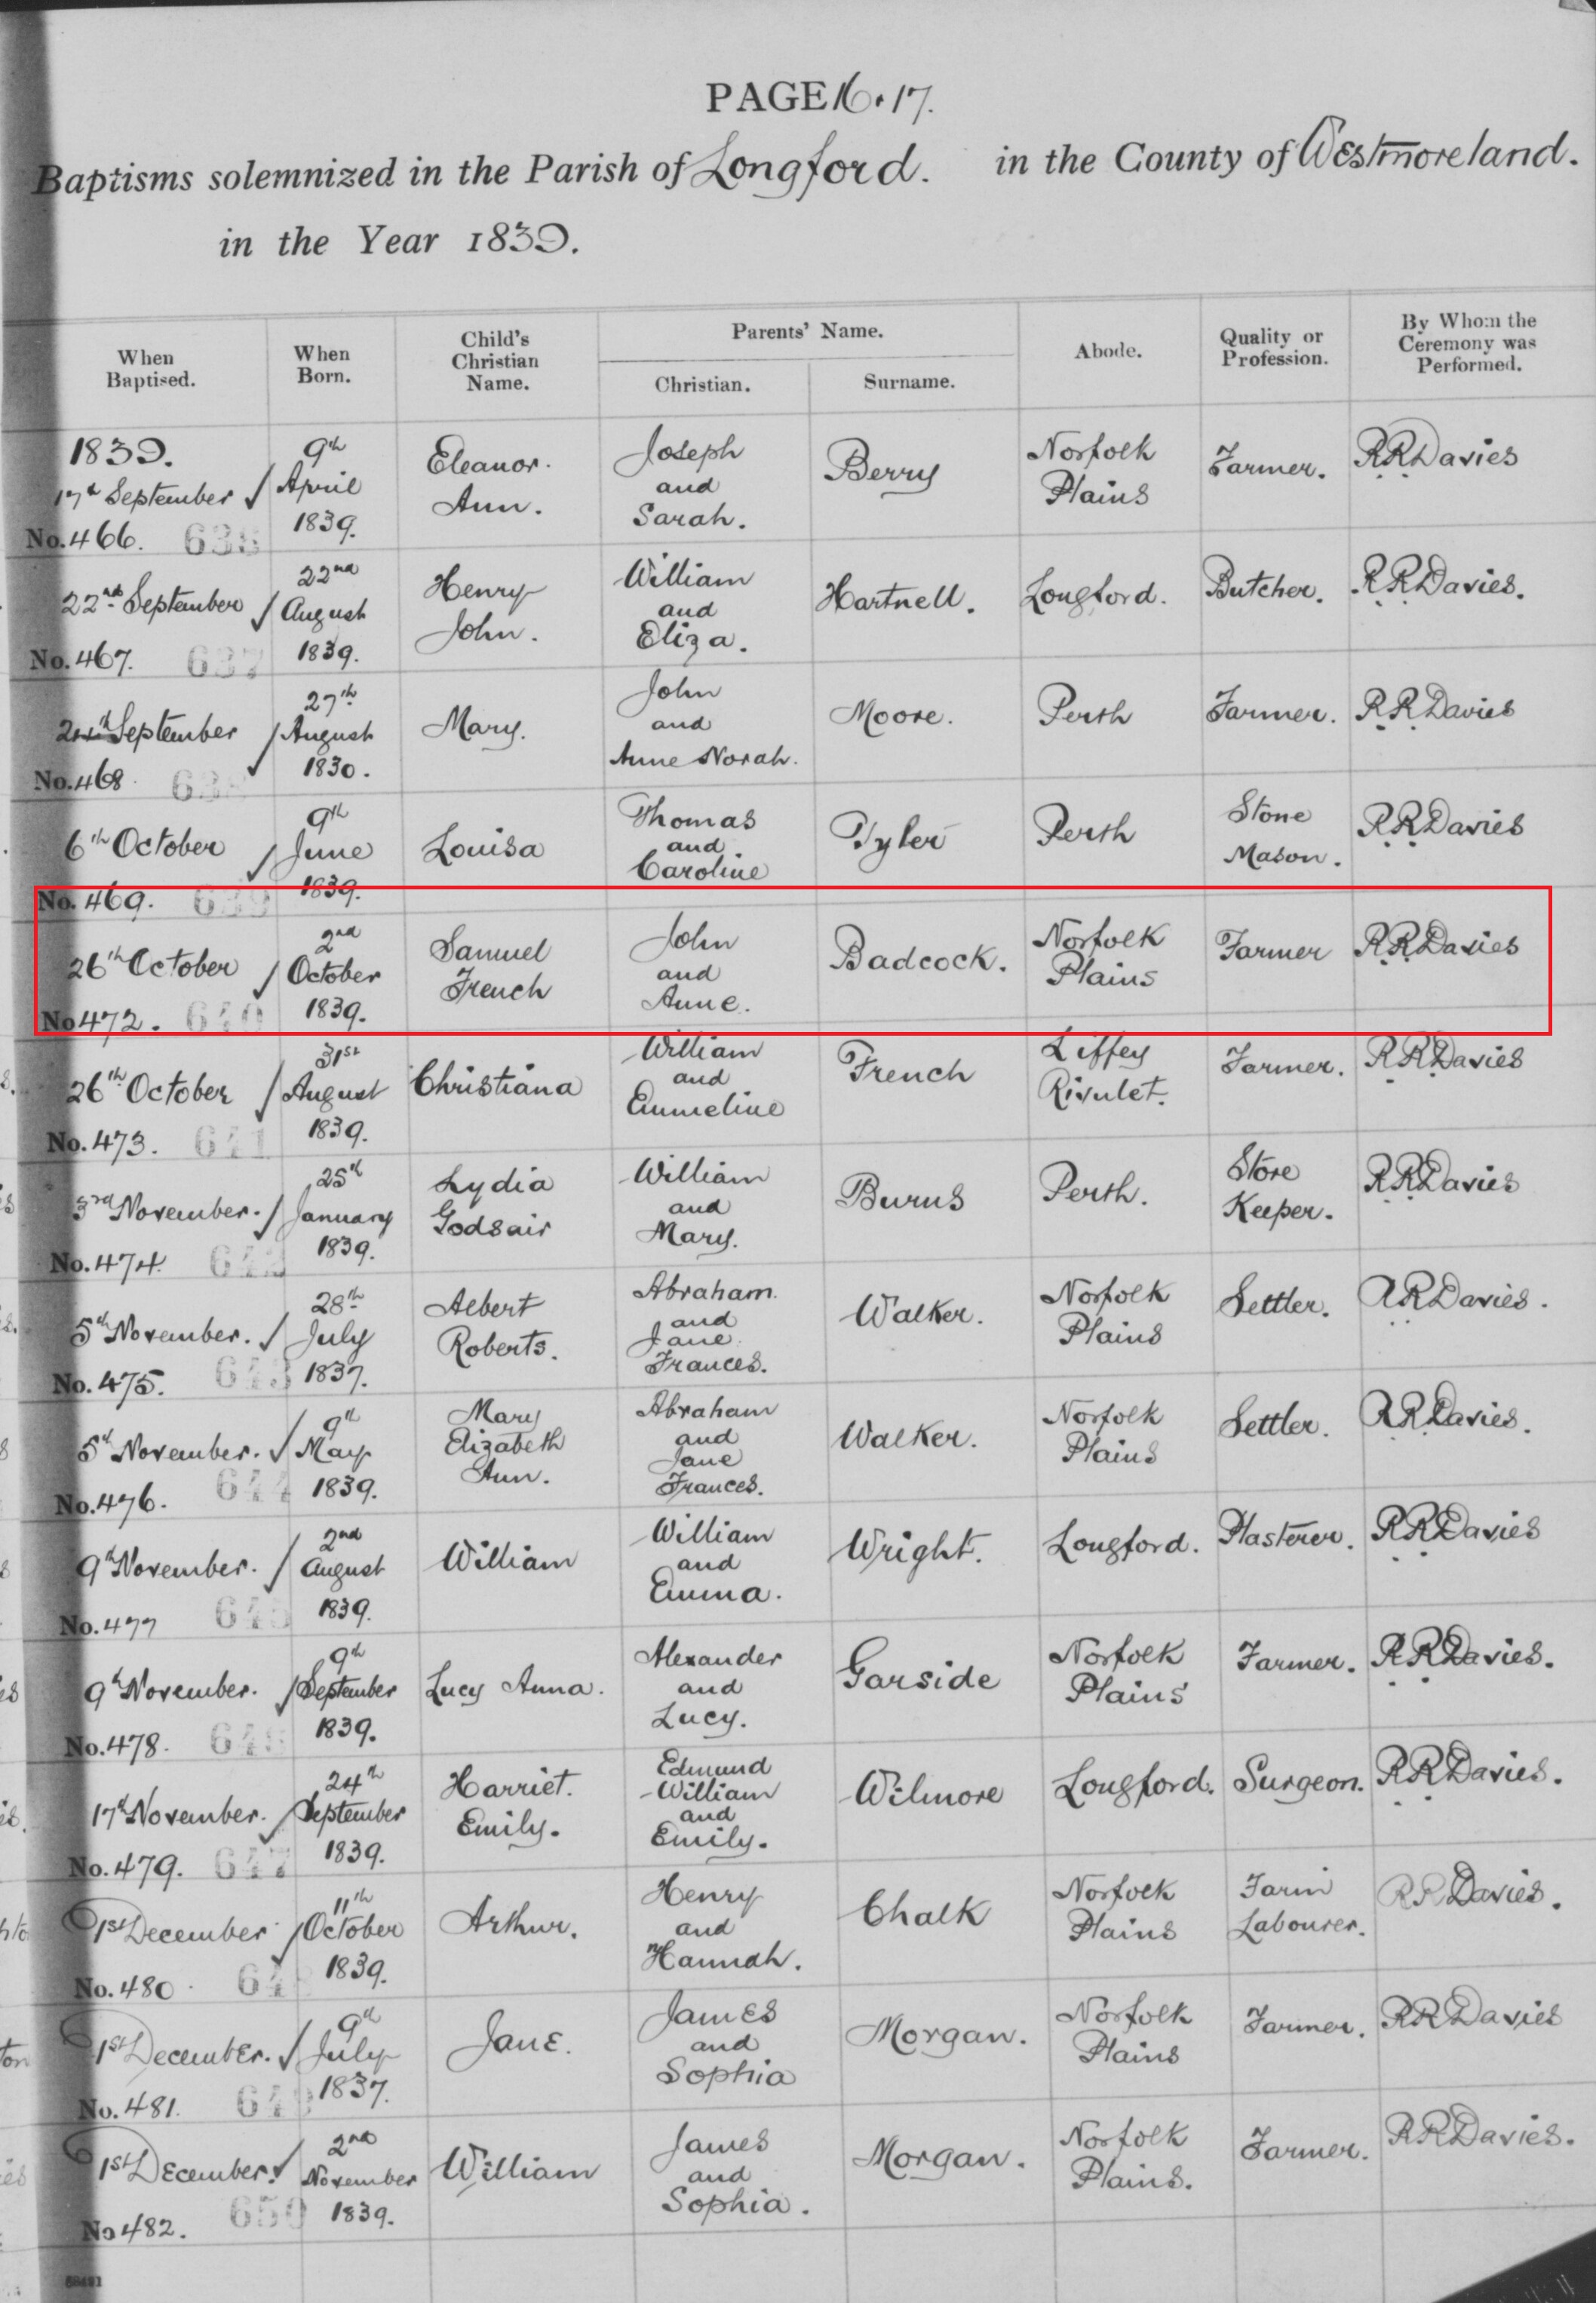 PAGE 16.17.
Baptisms solemnized in the Parish of Longford. in the County of Westmoreland.
in the Year 1839.
When Baptised. When Born. Child's Christian Name. Parents' Name. Christian. Surname. Abode. Quality or Profession. By Whom the Ceremony was Performed.
1839.
17th September No. 466. 636 9th April 1839. Eleanor. Ann. Joseph and Sarah. Berry Norfolk Plains Farmer. RRDavies
22nd September No. 467. 637 22nd August 1839. Henry John. William and Eliza. Hartnell. Longford. Butcher. RRDavies.
24th September No. 468 638 27th August 1830. Mary. John and Anne Norah. Moore. Perth Farmer. RRDavies
6th October No. 469. 639 9th June 1839. Louisa Thomas and Caroline Tyler Perth Stone Mason. RRDavies
26th October No 472. 640 2nd October 1839. Samuel French John and Anne. Badcock. Norfolk Plains Farmer RRDavies
26th October No. 473. 641 31st August 1839. Christiana William and Emmeline French Liffey Rivulet. Farmer. RRDavies
3rd November. No. 474. 642 25th January 1839. Lydia Godsair William and Mary. Burns Perth. Store Keeper. RRDavies
5th November. No. 475. 643 28th July 1837. Albert Roberts. Abraham. and Jane Frances. Walker. Norfolk Plains Settler. RRDavies.
5th November. No. 476. 644 9th May 1839. Mary Elizabeth Ann. Abraham and Jane Frances. Walker. Norfolk Plains Settler. RRDavies.
9th November. No. 477 645 2nd August 1839. William William and Emma. Wright. Longford. Plasterer. RRDavies
9th November. No. 478. 646 9th September 1839. Lucy Anna. Alexander and Lucy. Garside Norfolk Plains Farmer. RRDavies.
17th November. No. 479. 647 24th September 1839. Harriet. Emily. Edmund William and Emily. Wilmore Longford. Surgeon. RRDavies.
1st December No. 480. 64 11th October 1839. Arthur. Henry and Hannah. Chalk Norfolk Plains Farm Labourer. RRDavies.
1st December. No. 481. 649 9th July 1837. Jane. James and Sophia Morgan. Norfolk Plains Farmer. RRDavies
1st December. No 482. 650 2nd November 1839. William James and Sophia. Morgan. Norfolk Plains. Farmer. RRDavies.